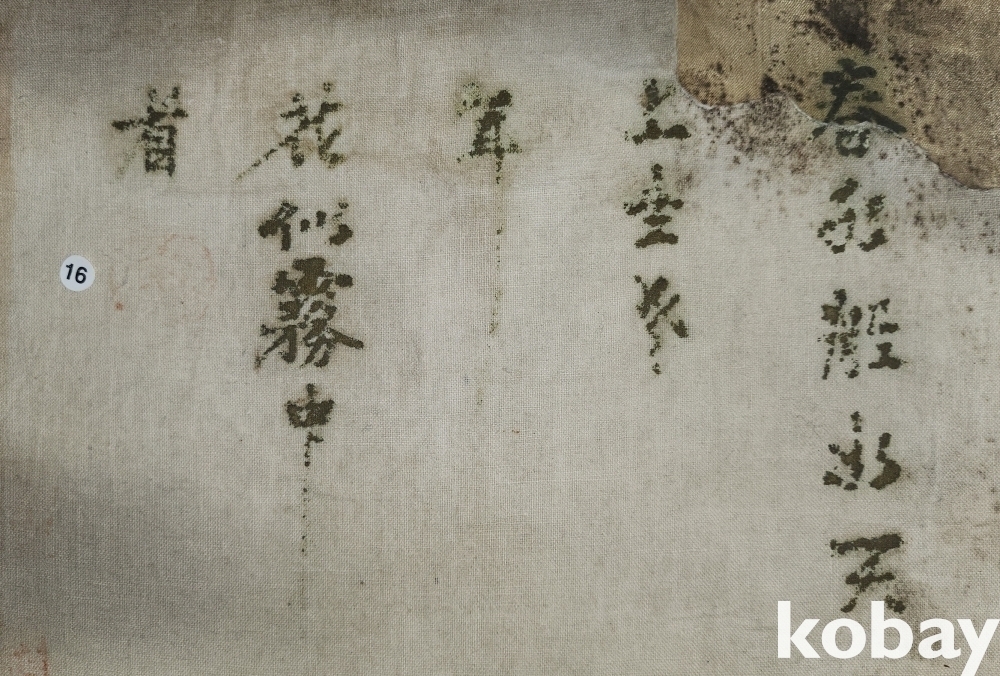 春水船如天
上坐老
年
花似霧中
看
16
kobay